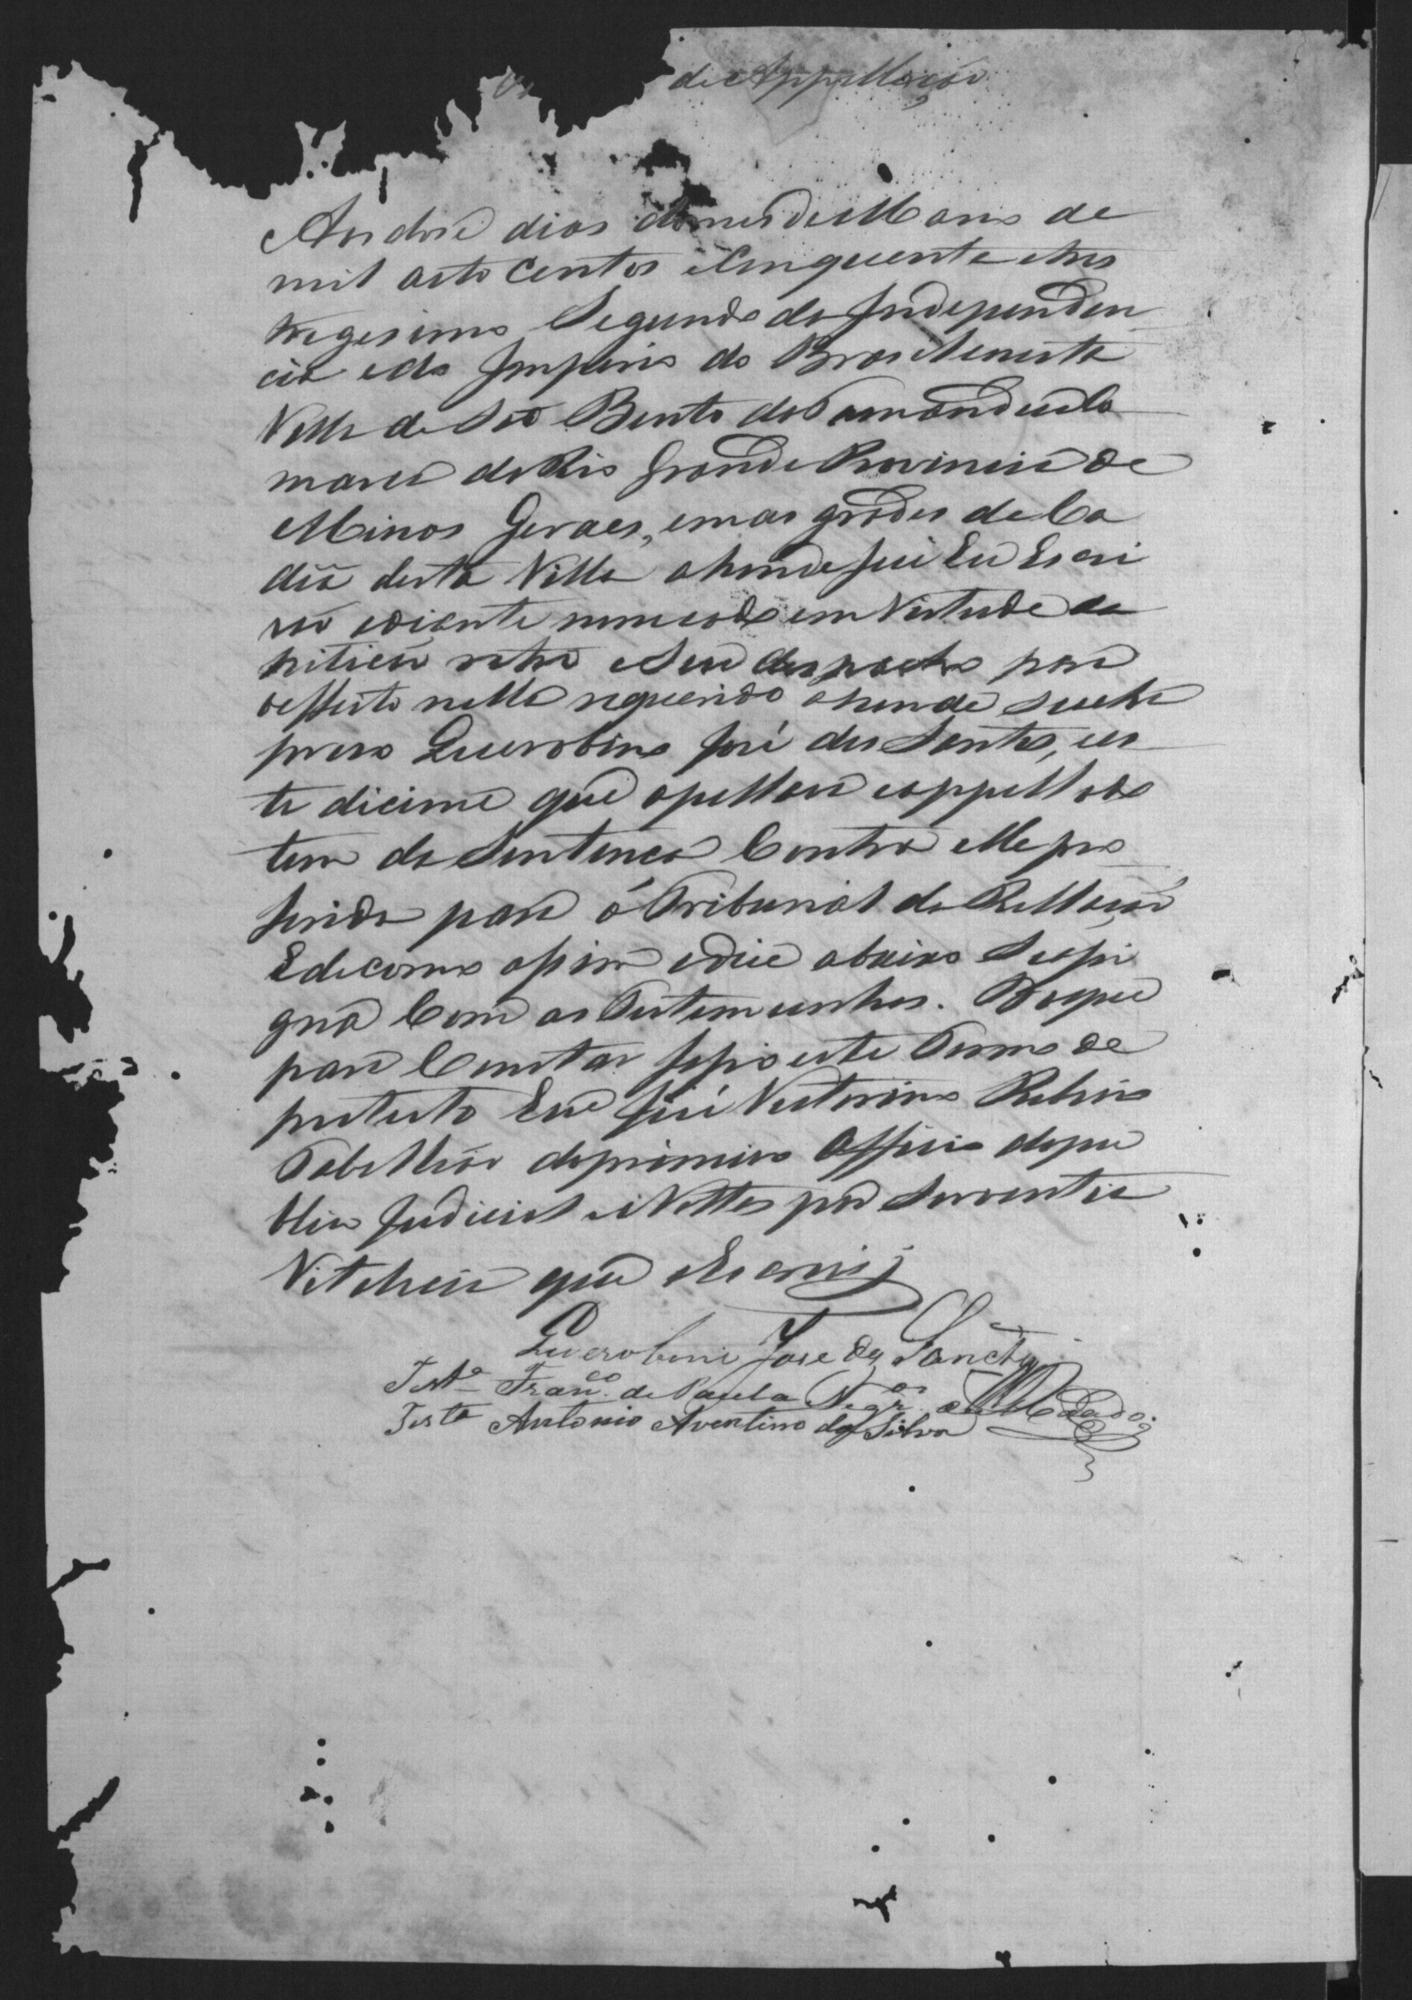 de Appellação
Aos dose dias do mes de Março de
mil oito centos e Cinquenta e tres
tregesimo Segundo da Independen
cia e do Imperio do Brasil nesta
Villa de São Bento do Tamanduá Co
marca do Rio Grande Provincia de
Minas Geraes, em as grades da Ca
dêa desta Villa ahonde fui Eu Escri
vão adiante nomeado em Virtude da
pitição retro e Seu despacho para
o effeito nella requerido ahonde se acha
preso Querobino José dos Santos, es
te dicime que apellava e appellado
tem da Sentença Contra elle pro
ferida para ó Tribunal da Rellação
E de como assim o dice abaixo Se assi
gna Com as Testemunhas. Do que
para Constar fasso este Termo de
protesto Eu José Victorino Ribeiro
Tabellião do primeiro Officio do pu
blico Judicial e Nottas por Serventia
Vitalicia que o Escrevi
Querobino Jose dos Sanctos
Test.a Fran.co de Paula
Test.a Antonio Aventino da Silva